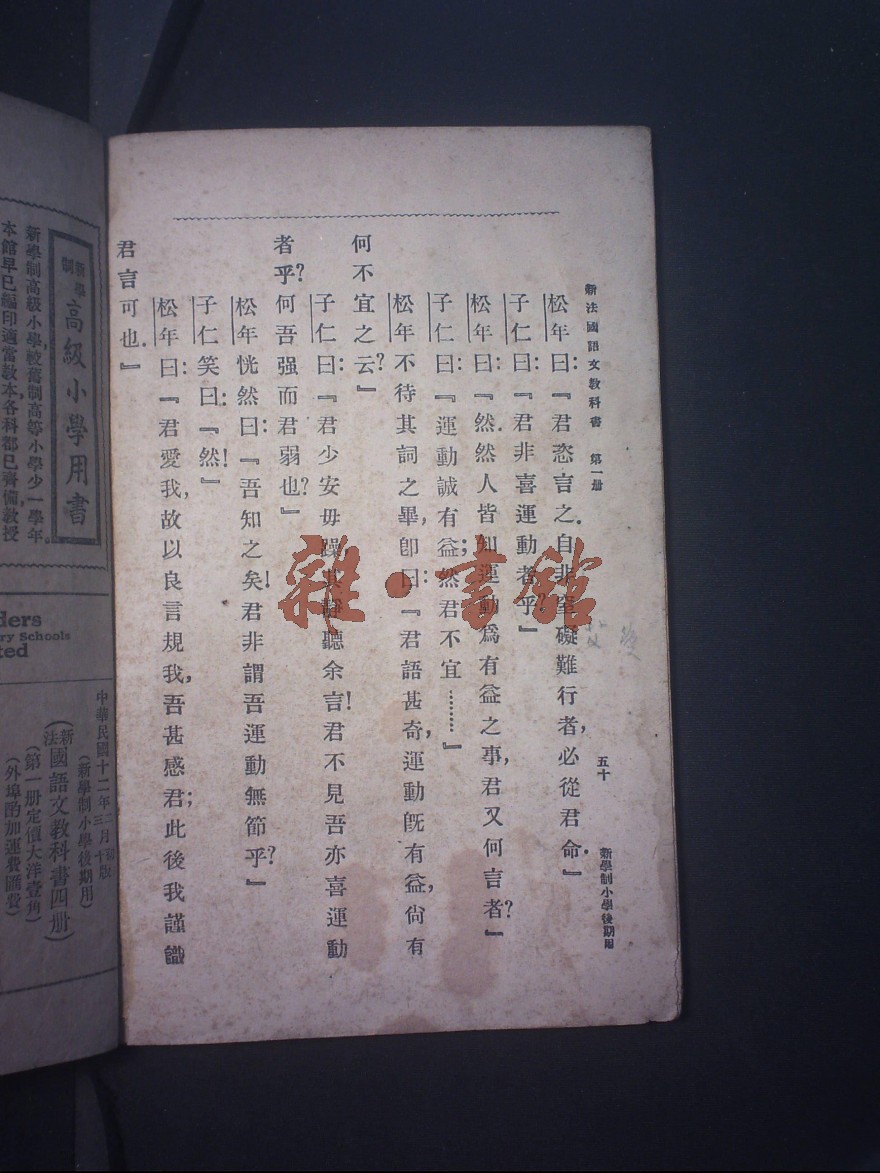 新法國語文教科書　第一册
五十
新學制小學後期用
松年曰：『君恣言之．自非窒礙難行者，必從君命．』
子仁曰：『君非喜運動者乎？』
松年曰：『然．然人皆知運動爲有益之事，君又何言者？』
子仁曰：『運動誠有益；然君不宜………』
松年不待其詞之畢，卽曰：『君語甚奇，運動旣有益，尙有
何不宜之云？』
子仁曰：『君少安毋躁，其靜聽余言！君不見吾亦喜運動
者乎？何吾强而君弱也？』
松年恍然曰：『吾知之矣！君非謂吾運動無節乎？』
子仁笑曰：『然！』
松年曰：『君愛我，故以良言規我，吾甚感君；此後我謹識
君言可也．』
雜·書館
新學制
高級小學用書
新學制高級小學，較舊制高等小學少一學年．
本館早已編印適當敎本，各科都已齊備，敎授
ders
ry Schools
ted
中華民國十二年
（新學制小學後期用）
（新法國語文敎科書四册）
（第一册定價大洋壹角）
（外埠酌加運費匯費）